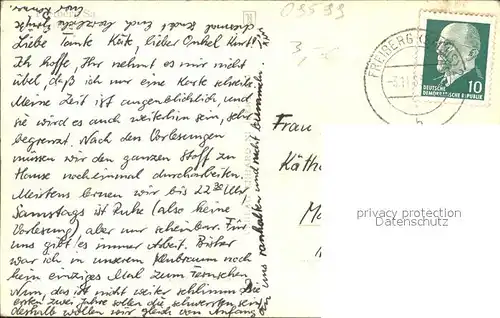 Liebe Tante Käte, lieber Onkel Kurt!
Ich hoffe, Ihr nehmt es mir nicht
übel, daß ich nur eine Karte schreibe.
Meine Zeit ist augenblicklich, und
sie wird es auch weiterhin sein, sehr
begrenzt. Nach den Vorlesungen
müssen wir den ganzen Stoff zu
Hause noch einmal durcharbeiten.
Meistens lernen wir bis 22³⁰ Uhr,
Samstags ist Ruhe (also keine
Vorlesung), aber nur scheinbar. Für
uns gibt es immer Arbeit. Bisher
war ich in unserem Klubraum noch
kein einziges Mal zum Fernsehen
Nun, das ist nicht weiter schlimm. Die
ersten zwei Jahre sollen die schwersten sein,
deshalb wollen wir gleich von Anfang
an uns ranhalten und nicht bummeln.
Euch herzliche Grüße
Eure
09599
3,-
FREIBERG
DEUTSCHE
DEMOKRATISCHE REPUBLIK
10
b
Frau
Käth
privacy protection
samples